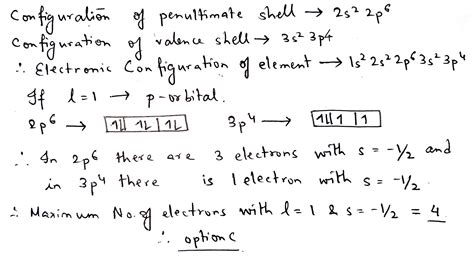 Configuration of penultimate shell → 2s² 2p⁶
Configuration of valence shell → 3s² 3p4
∴ Electronic Configuration of element → 1s² 2s² 2p⁶ 3s² 3p⁴
If l=1 → p-orbital.
2p⁶ → 1L 1L 1L 3p⁴ → 1L 1 1
∴ In 2p⁶ there are 3 electrons with s = -1/2 and
in 3p⁴ there is 1 electron with s = -1/2.
∴ Maximum No. of electrons with l=1 & s=-1/2 = 4
∴ option C